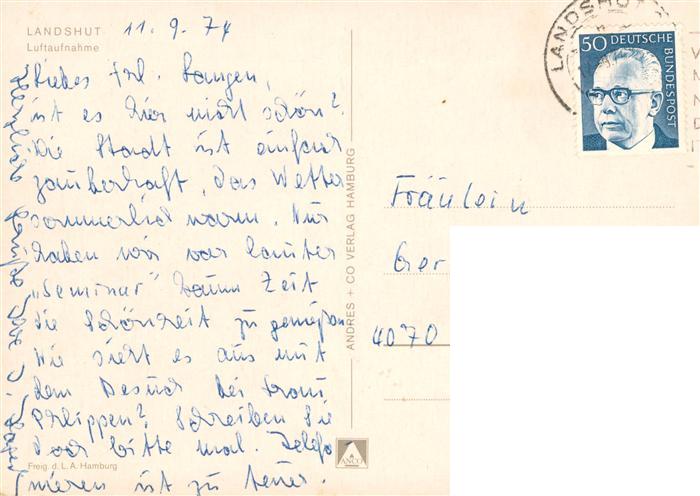 LANDSHUT
Luftaufnahme
11.9.74
Liebes Frl. Langen,
ist es hier nicht schön?
Die Stadt ist einfach
zauberhaft, das Wetter
sommerlich warm. Nur
haben wir vor lauter
„Seminar" kaum Zeit
die Schönheit zu genießen
Wie sieht es aus mit
dem Besuch bei Frau
Philippen? Schreiben Sie
doch bitte mal. Telefo
nieren ist zu teuer.
Herzliche Grüße Ihre
Freig. d. L. A. Hamburg
ANDRES + CO VERLAG HAMBURG
ANCO
LANDSHUT
50 DEUTSCHE
BUNDESPOST
Fräulein
Ger
4070